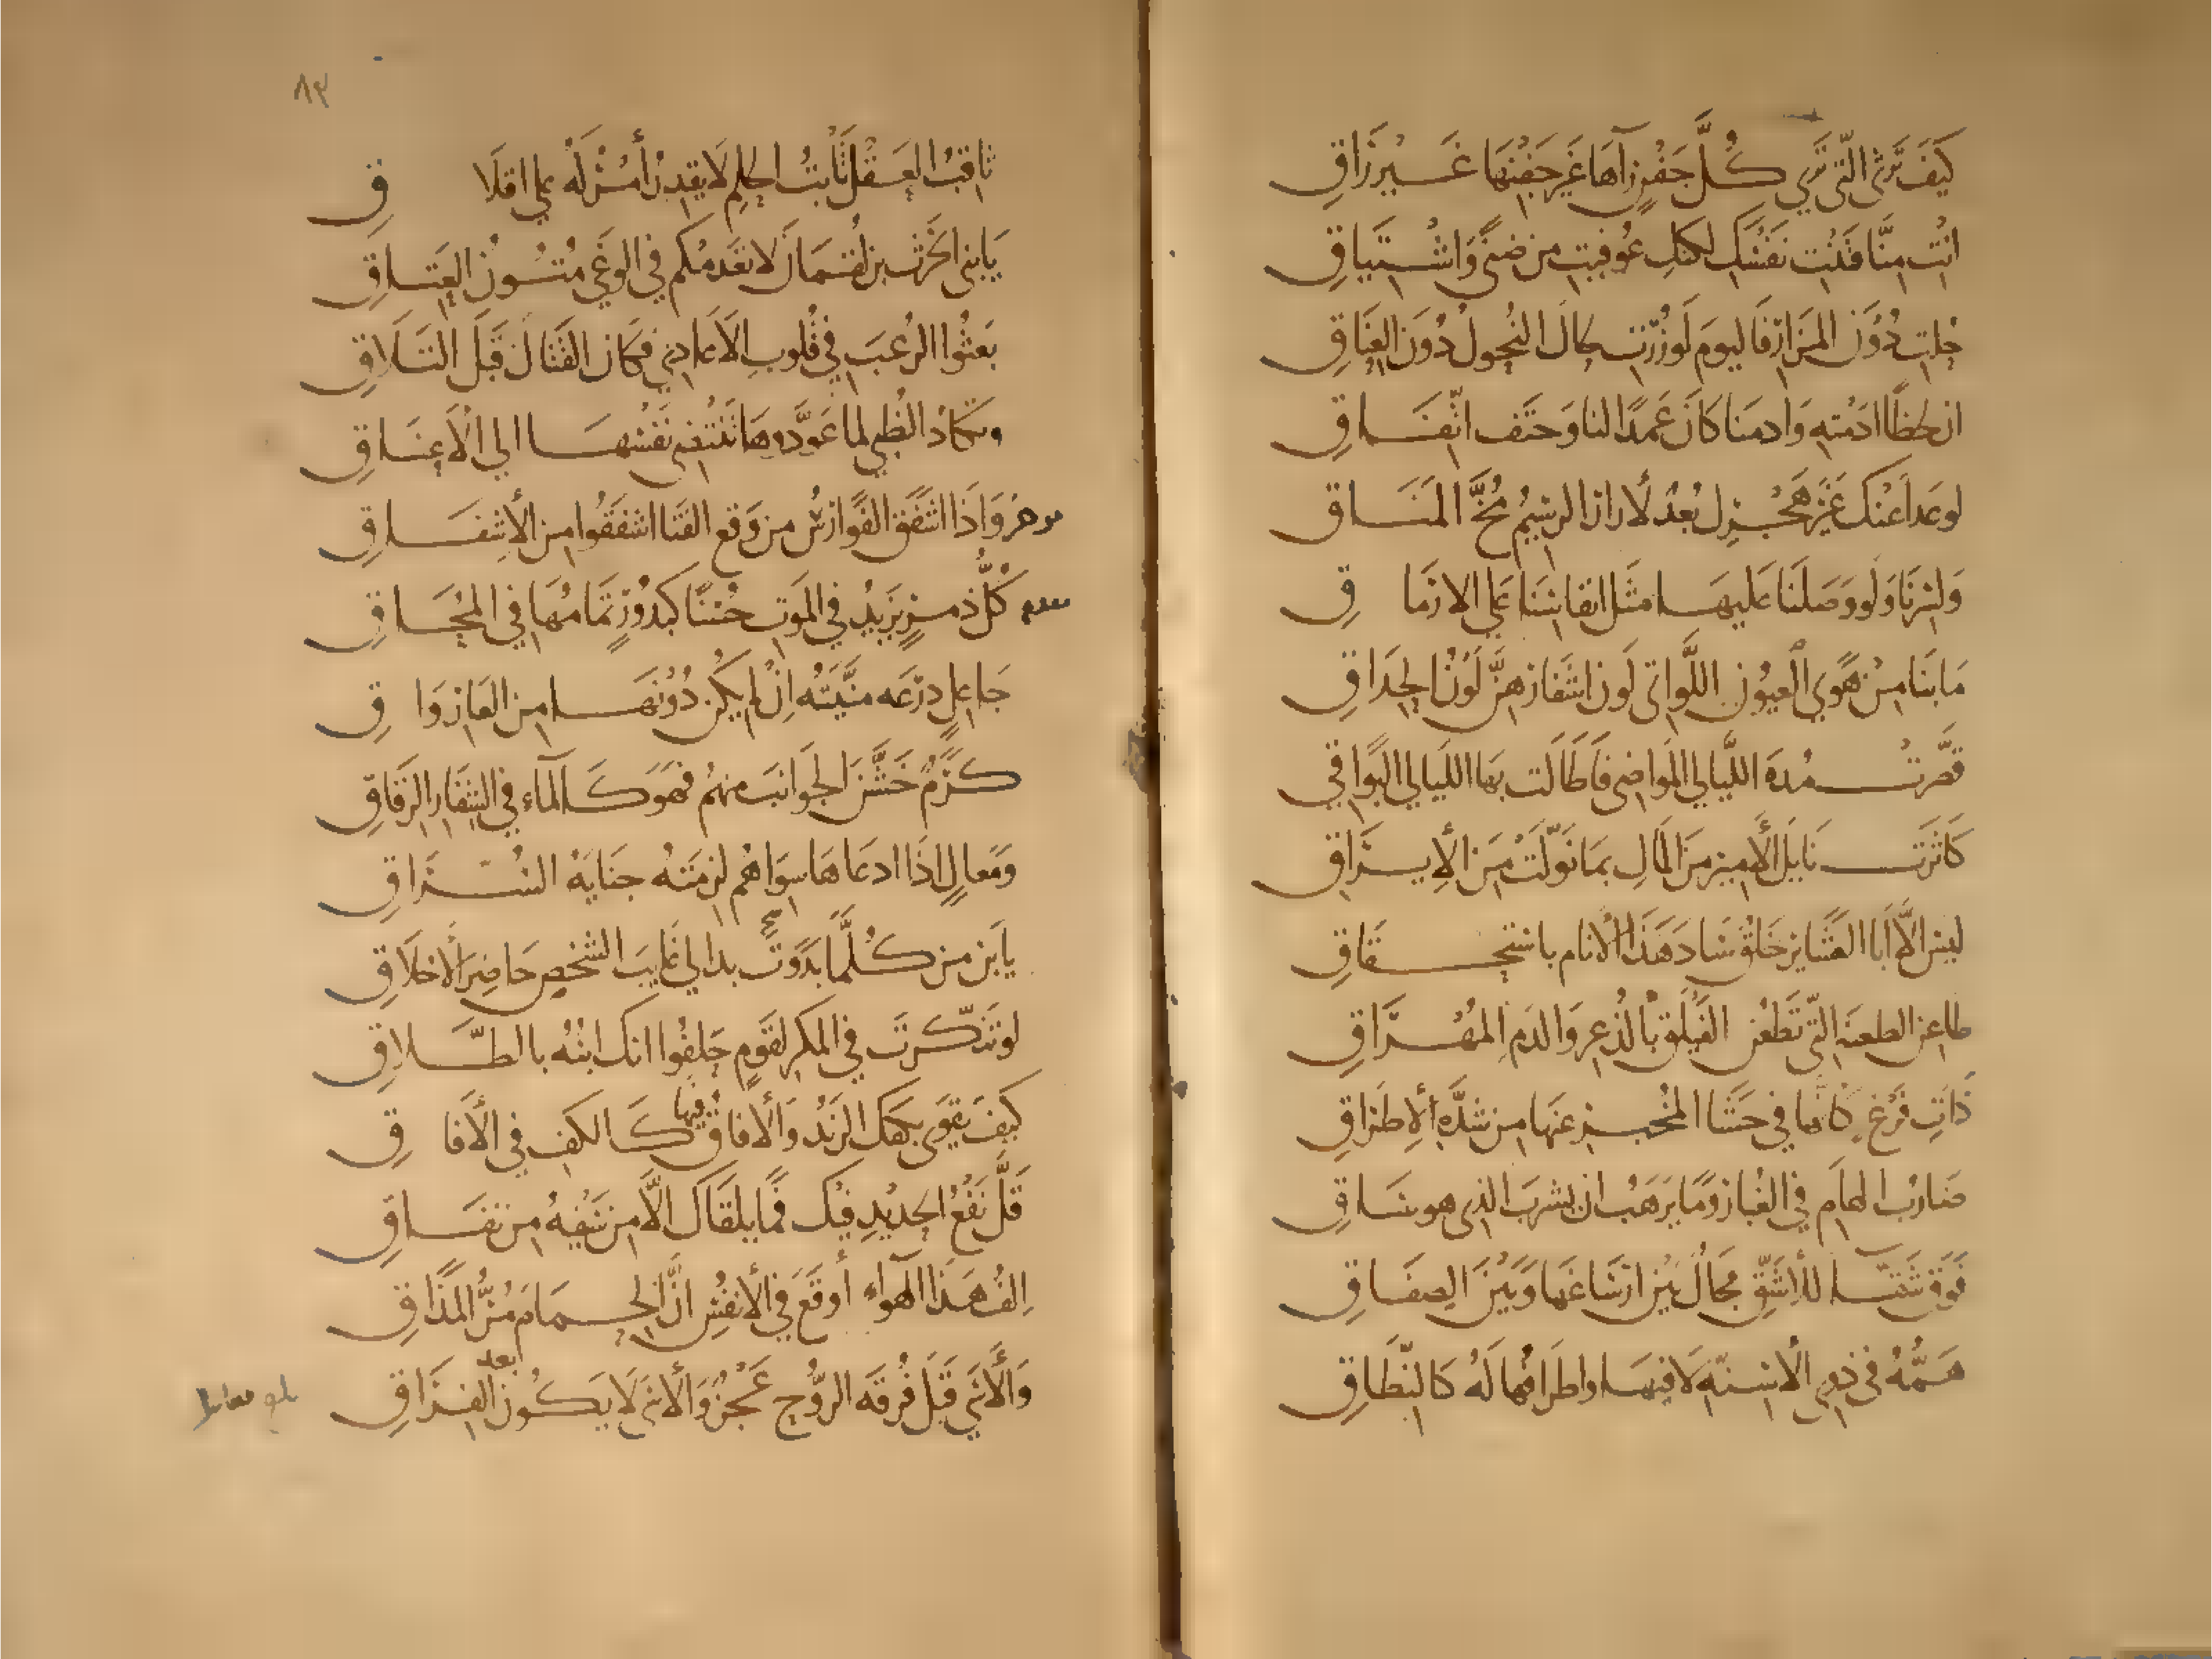 كَيفَ تَرثى الّتى تَرَي كُلَّ جَفْنٍ رَآهَا غَيرَ جَفْنِهَا غَيْرَ رَاقِ
انْتِ مِنَّا فَتَنْتِ نَفْسَكِ لكنكِ عُوفِيتِ من ضنًى وَاشْتِيَاقِ
حُلتِ دُوْنَ المَزَارِ فَاليومَ لَو زُرْتِ لحال النُحولُ دُوْنَ العِنَاقِ
ان لحظًا ادَمْتِهِ وَادمنَا كَانَ عَمدًا لنا وَحَتفَ اتّفَاقِ
لو عَدا عَنكِ غَيْرَ هَجْرِكِ بُعْدٌ لَأَرَارَ الرسِيمُ مُخَّ المَنَاقِ
وَلسِرنَا وَلَو وَصَلنَا عَليهَا مثَل انفاسِنا عَلي الارمَا ق
مَا بنَا مِنْ هَوي الْعيُونِ اللَّوَاتى لَونُ اشفَارِهِنَّ لَوْنُ الحِدَاقِ
قصَّرتْ مُدةَ اللّيالي المَواضى فَأَطَالَت بهَا الليَالي البَوَاقي
كَاثَرَت نَايلَ الأَمِيرِ مِنَ المَالِ بمَا نَوّلَتْ مِنَ الإيرَاقِ
ليسَ الّا أَبَا العَشَايرِ خَلقٌ سَادَ هَذَا الأنام باستحقَاقِ
طَاعِن الطعنةِ الّتى تَطْعُن الفَيْلَقَ بالذُعرِ وَالدَمِ المُهْرَاقِ
ذَاتِ فَرْغٍ كانّها فى حَشَا المُخْبَرِ عَنهَا مِن شدَّةِ الإطرَاقِ
ضَارِبُ الهَامِ فى الغُبَارِ وَمَا يَرهَبُ ان يشرَبَ الذى هو سَاقِ
فَوقَ شقّاء للأشَقِّ مَجَالٌ بَيْنَ ارسَاغِهَا وَبَيْنَ الصِفَاقِ
هَمُّهُ فى ذوى الأَسِنّةِ لَا فِيهَا واطرَافُها لَهُ كَالنِّطَاقِ
٨٣
ثاقِبُ العَقْلِ ثَابتُ الحلمِ لَا يقدِرُ أَمْرٌ لَهُ علي اقلَا ق
يَا بَنى الحَرْثِ بنِ لُقْمَانَ لَا تَعْدَمكُم في الوَغَي مُتُونُ العِتَاقِ
بَعثُوا الرُعبَ فى قُلوبِ الأَعَادِي فَكَانَ القِتَالُ قَبْلَ التَلَاقِ
وَتكَادُ الظُبى لِمَا عَوَّدوهَا تَنْتَضى نَفْسَهَا الي الأَعنَاقِ
وَاذَا اشْفَقَ الفَوَارِسُ مِن وَقعِ القَنَا اشفَقُوا مِنَ الإشفَاقِ
كُلُّ ذِمْرٍ يَزيدُ في المَوتِ حُسْنًا كَبدُوْرٍ تَمَامُهَا فى المُحَاقِ
جَاعلٍ دِرْعَه منَّيَتَهُ اِنْ لم يكُن دُوْنَهَا مِن العَارِ وَا ق
كَرَمٌ خَشَّنَ الجَوَانبَ مِنهُم فَهوَ كَالمَاء في الشِفَارِ الرِقَاقِ
وَمَعالٍ اذَا ادعَاهَا سِوَاهُم لزِمَتهُ جنَايَةُ السُّرَّاقِ
يا بنَ مَن كُلَّمَا بَدَوْتَ بدا لي غَايبَ الشخصِ حَاضِرَ الأخلَاقِ
لو تنكّرتَ فى المَكرِّ لقَومٍ حَلفُوا انكَ ابنُهُ بالطَّلاقِ
كَيفَ يقوَى بكفكَ الزَندُ وَالآفاقُ فيها كَالكفِ في الآفَا ق
قَلَّ نَفْعُ الحَديْدِ فيكَ فمَا يلقَاكَ الّا مِن سَيْفِهُ مِن نفَاقِ
اِلفُ هَذَا الهَواءِ أَوقَعَ في الأَنفُسِ انَّ الحِمَامَ مُرُّ المَذَاقِ
وَالأَسَى قَبْلَ فُرقَةِ الرُّوحِ عَجْزٌ وَالأَسَى لَا يَكُونُ بعد الفِرَاقِ